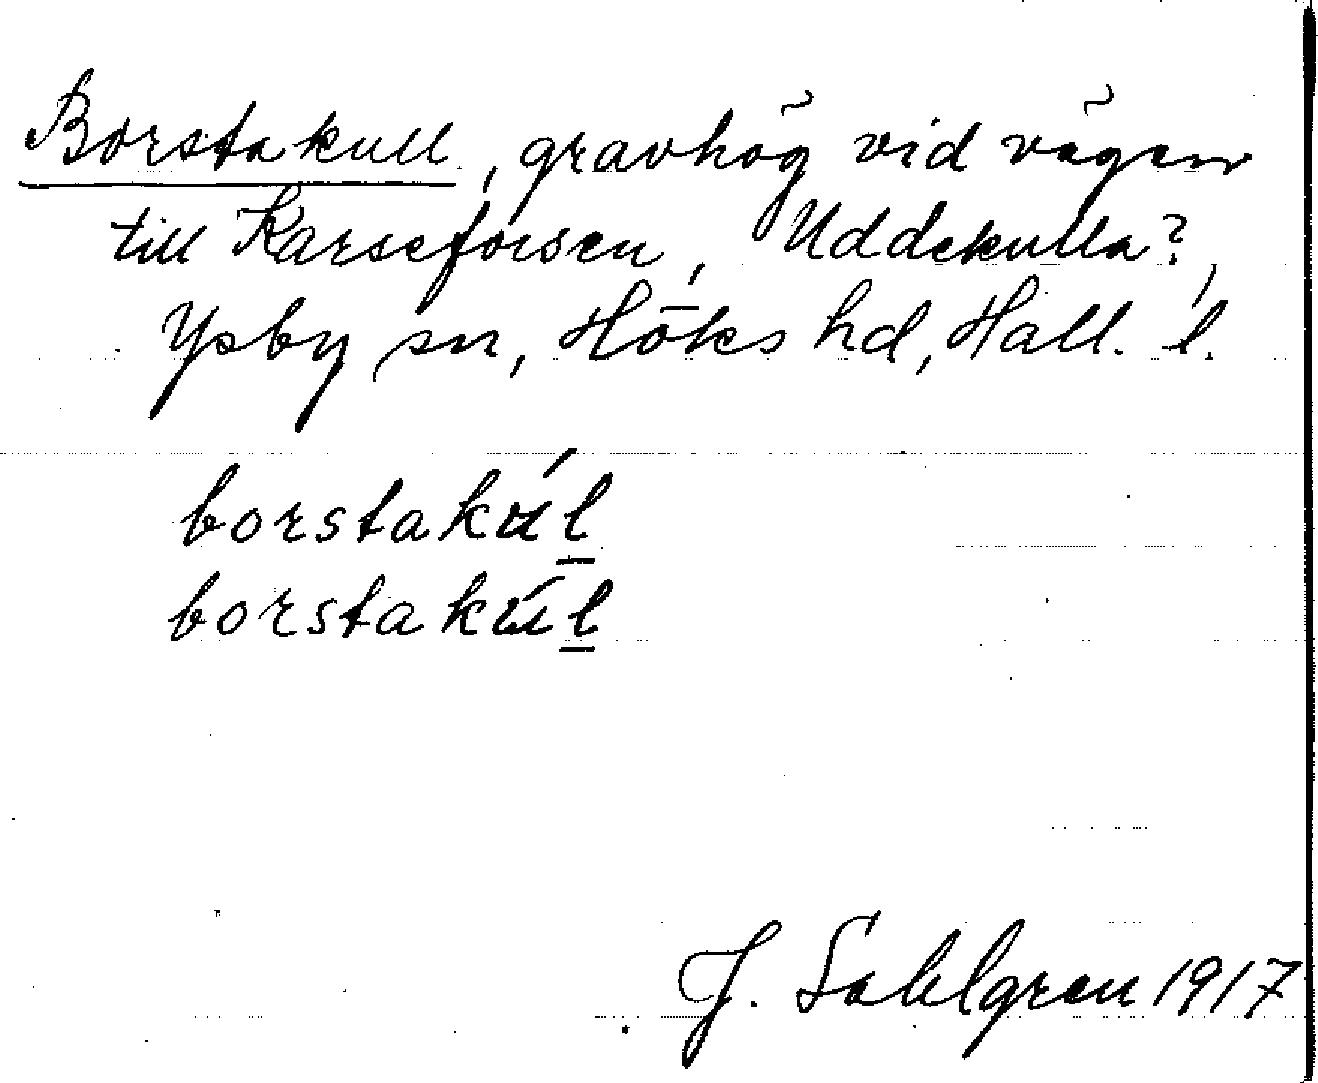 Borstakull, gravhög vid vägen
till Karseforsen, Uddekulla?,
Ysby sn, Höks hd, Hall. l.
borstakúl̲
borstakúl̲
J. Sahlgren 1917